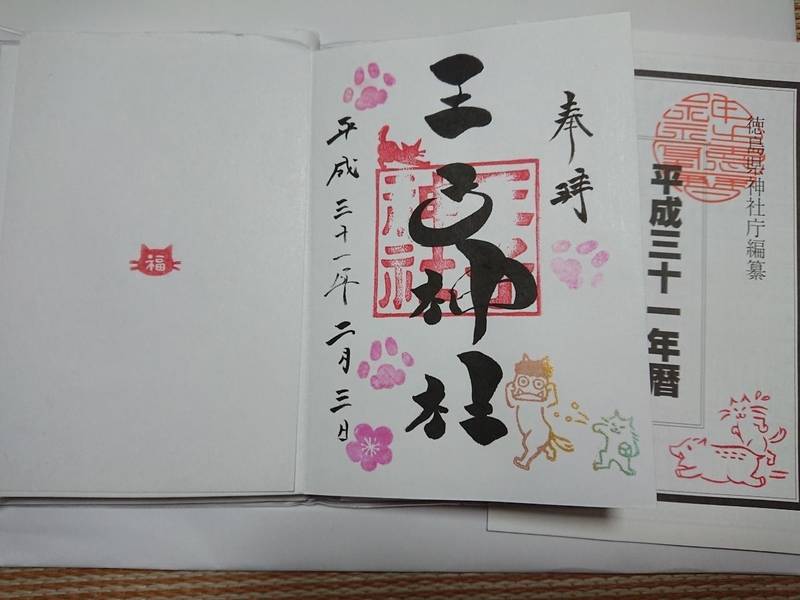 徳島県神社庁編纂
平成三十一年暦
奉拝
王子神社
王子
神社
平成三十一年二月三日
福